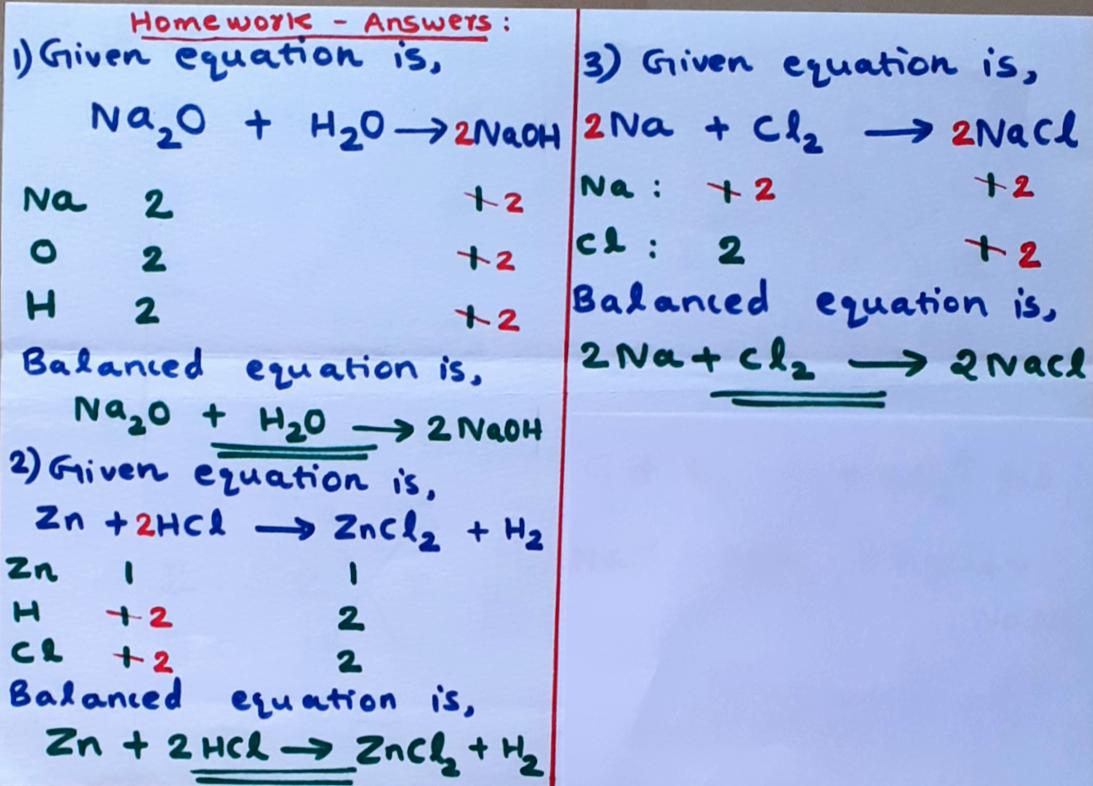 Homework - Answers:
1) Given equation is,
Na₂O + H₂O → 2NaOH
Na 2 1 2
O 2 1 2
H 2 1 2
Balanced equation is,
Na₂O + H₂O → 2NaOH
2) Given equation is,
Zn + 2HCl → ZnCl₂ + H₂
Zn 1 1
H 1 2 2
Cl 1 2 2
Balanced equation is,
Zn + 2HCl → ZnCl₂ + H₂
3) Given equation is,
2Na + Cl₂ → 2NaCl
Na : 1 2 1 2
Cl : 2 1 2
Balanced equation is,
2Na + Cl₂ → 2NaCl